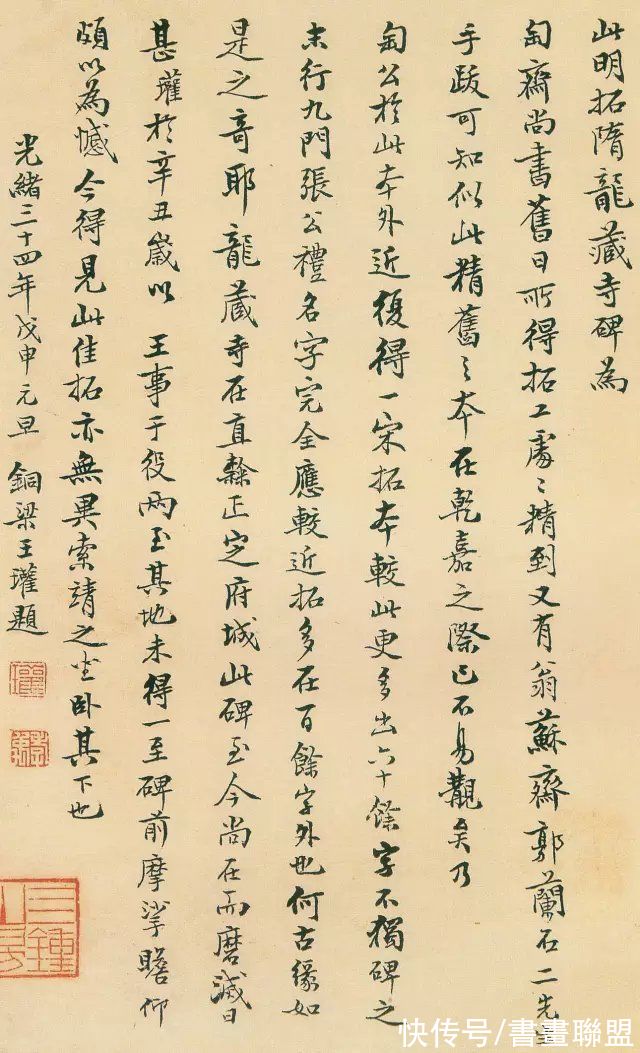 此明拓隋龍藏寺碑為
匋齋尚書舊日所得拓工處〻精到又有翁蘇齋郭蘭石二先生
手跋可知似此精舊之本在乾嘉之際已不易覯矣乃
匋公於此本外近復得一宋拓本較此更多出六十餘字不獨碑之
末行九門張公禮名字完全應較近拓多在百餘字外也何古緣如
是之奇耶龍藏寺在直隸正定府城此碑至今尚在而磨滅日
甚瓘於辛丑歲以 王事于役兩至其地未得一至碑前摩挲瞻仰
頗以為憾今得見此佳拓亦無異索靖之坐卧其下也
光緒三十四年戊申元旦 銅梁王瓘題
三鍾山房
快传号/書畫聯盟